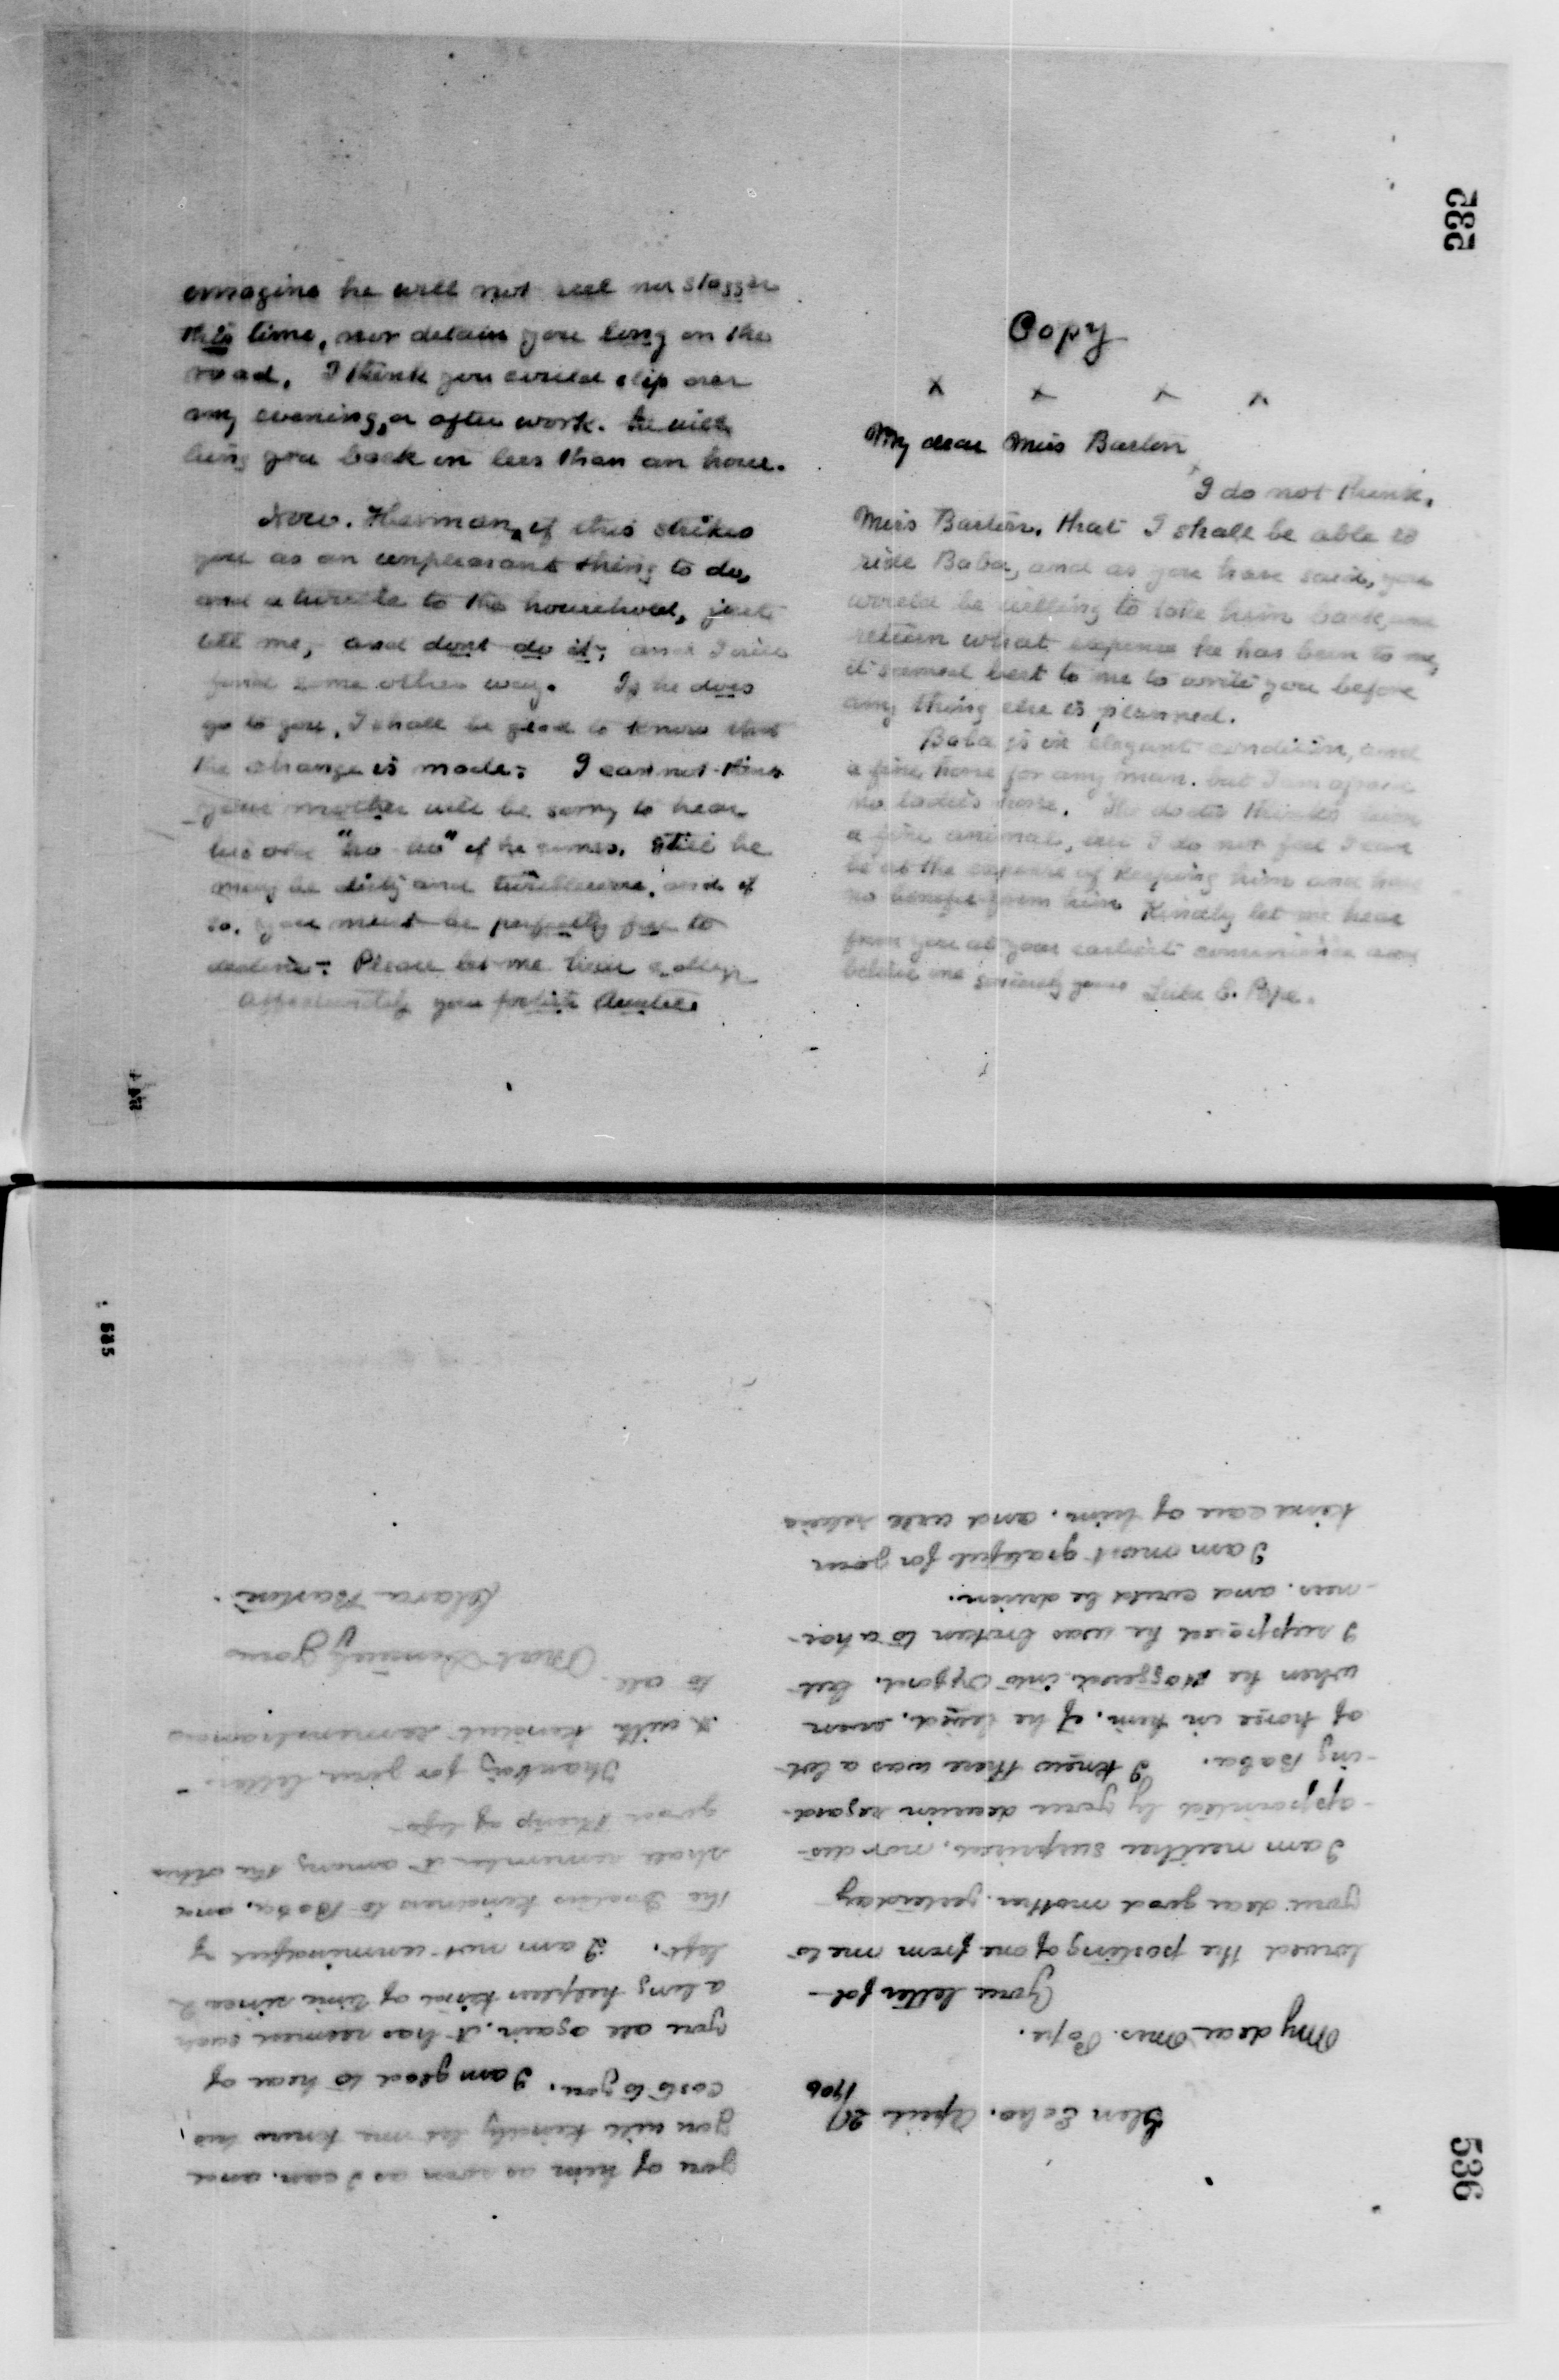 535
imagine he will not reel nor stagger
this time, nor detain you long on the
road. I think you could slip over
any evening, or after work. he will
bring you back in less than an hour.
Now. Herman, if this strikes
you as an unpleasant thing to do,
and a trouble to the household, just
tell me, and dont do it; and I will
find some other way. If he does
go to you, I shall be glad to know that
the change is made; I cannot think
your mother will be sorry to hear
his old "ho ho" if he comes. Still he
may be dirty and troublesome. and if
so. you must be perfectly free to
decline - Please let me hear
Affectionately your Auntie.
Copy
x x x x
My dear Miss Barton
I do not think,
Miss Barton, that I shall be able to
ride Baba, and as you have said, you
would be willing to take him back, and
return what expense he has been to me,
it seemed best to me to write you before
any thing else is planned.
Baba is in elegant condition, and
a fine horse for any man. but I am afraid
no ladies horse. The doctor thinks him
a fine animal, but I do not feel I can
be at the expense of keeping him and have
no benefit from him Kindly let me hear
from you at your earliest convenience and
believe me sincerely yours C. Pope.
585
536
Glen Echo. April 20/
1906
My dear Mrs. Pope.
Your letter fol-
lowed the posting of one from me to
your dear good mother yesterday
I am neither surprised, nor dis-
-appointed by your decision regard-
-ing Baba. I knew there was a lot
of horse in him, if he lived, even
when he staggered into Oxford. but
I supposed he was broken to a har-
-ness. and could be driven.
I am most grateful for your
kind care of him. and will relieve
you of him as soon as I can. and
you will kindly let me know his
costs to you. I am glad to hear of
you all again, it has seemed such
a long helpless kind of time since I
left. I am not unmindful of
the Doctors kindness to Baba, and
shall remember it among the other
good things of life.
Thanking for your letter -
& with kindest remembrances
to all
Most Sincerely yours
Clara Barton.